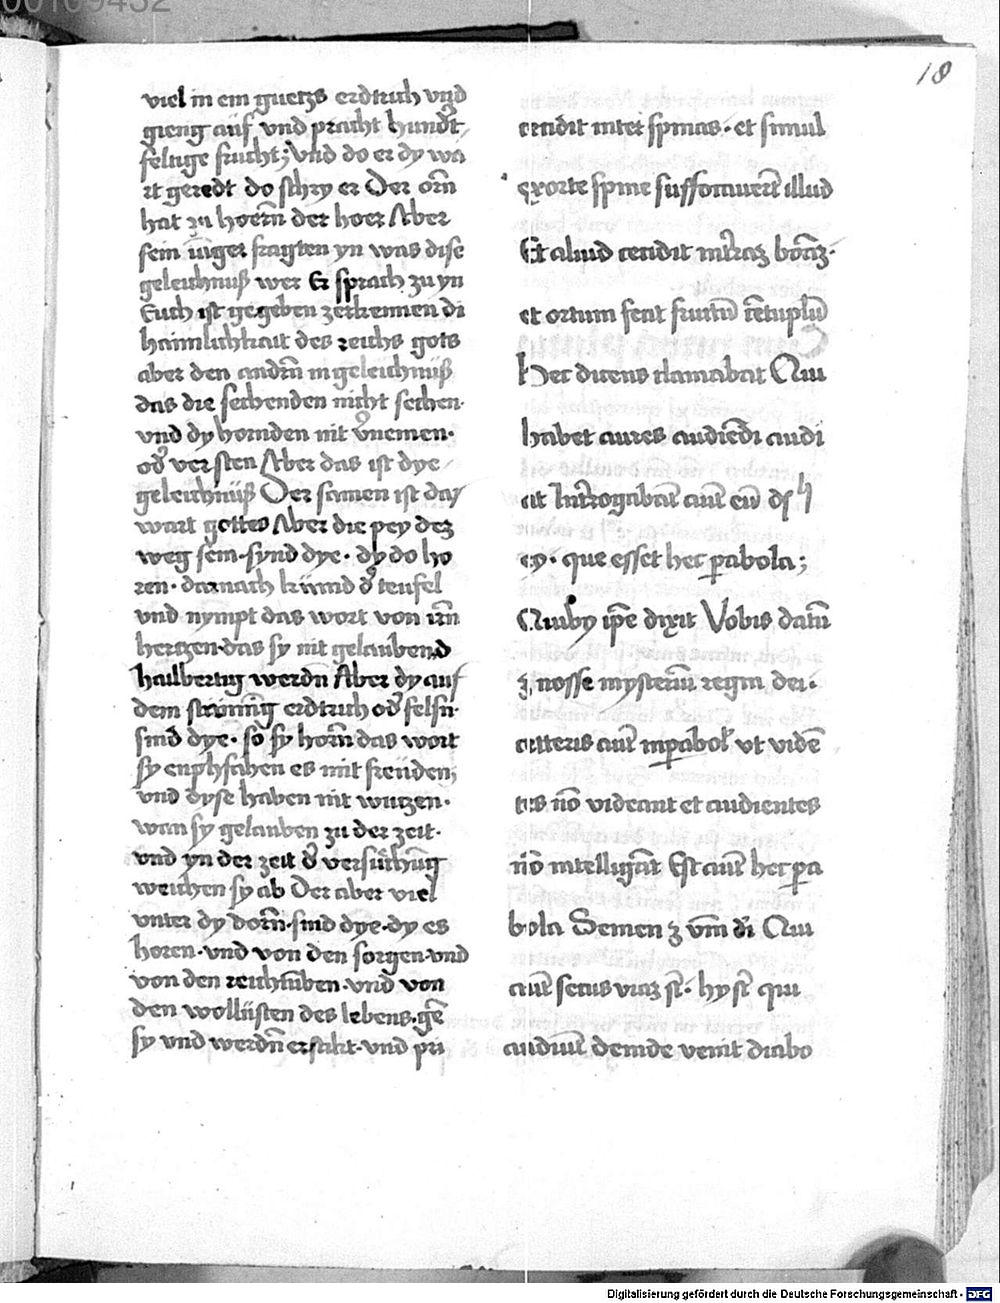 00109432
18
viel in ein guetzs erdtrich vnd
gieng auf vnd pracht hundert
feltige frucht; vnd do er dy wa
rt geredt do schry er Der orn̄
hat zu hoern̄ der hoer Aber
sein iunger fragten yn was dise
geleichnuß wer Er sprach zu yn
Euch ist gegeben zerkennen di
haimlichkait des reichs gots
aber den andrn̄ in geleichnuß
das die sechenden nicht sechen·
vnd dy hornden nit v̉nemen·
od̉ versten Aber das ist dye
geleichnüß Der samen ist das
wart gottes Aber die pey dez
weg sein· synd dye· dy do ho
ren· darnach kümd d̉ teufel
vnd nympt das wort von irn̄
hertzen· das sy nit gelaubend
hailbertig werdn̄ Aber dy auf
dem stainīg erdtrich od̉ felsn·
sind dye· so sy horn̄ das wort
sy enphfahen es mit freüden;
vnd dyse haben nit wurzen·
wan sy gelauben zu der zeit·
vnd yn der zeit d̉ versuchūg
weichen sy ab Der aber viel
vnter dy dorn̄· sind dye· dy es
horen· vnd von den sorgen· vnd
von den reichtuben· vnd von
den wollüsten des lebens· gē
sy vnd werdn̄ erstakt· vnd pri
cecidit inter spinas· et simul
exorte spine suffocauerūt illud
Et aliud cecidit in t̉raz bonāz·
et ortum fecit fructū cētuplū
Hec dicens clamabat Qui
habet aures audiēdi audi
at Int̉rogabāt aut̄ eū dſ
ey· que esset hec pabola;
Quiby ip̄e dixit Vobis datū
ꝫ nosse mysteriū regni dei·
ceteris aut̄ in pabol̉ vt vidē
tes nō videant et audientes
nō intelligāt Est aut̄ hec pa
bola Semen ꝫ vm̄ dī Qui
aut̄ secus viaz st̄· hy st̄ qui
audiūt deinde venit diabo
Digitalisierung gefördert durch die Deutsche Forschungsgemeinschaft - DFG